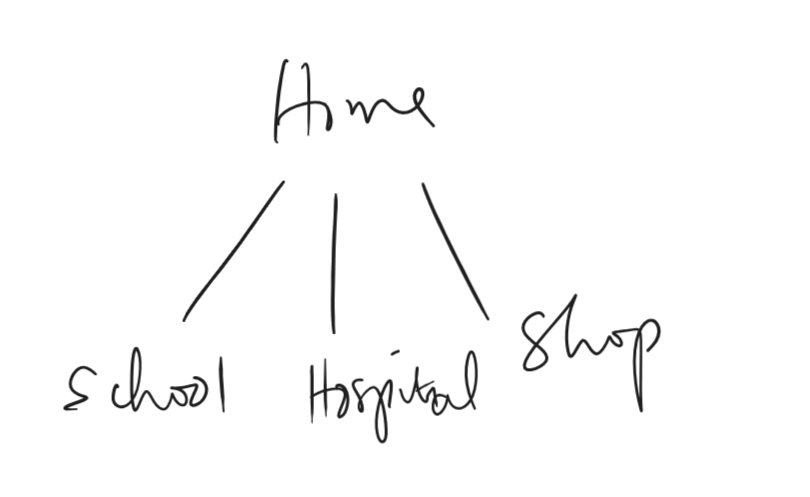 Home
School Hospital Shop